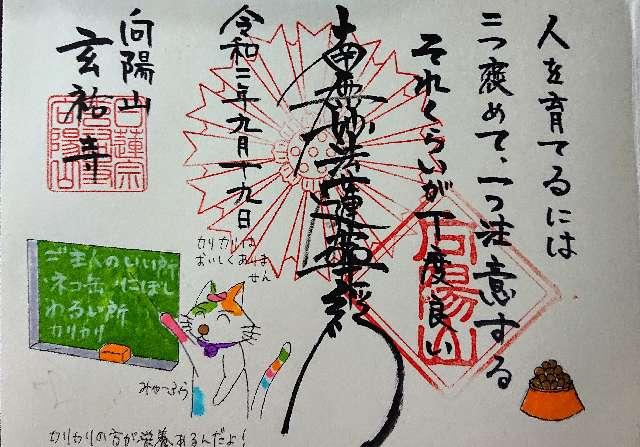 人を育てるには
三つ褒めて、一つ注意する
それくらいが丁度良い
南無妙法蓮華経
令和三年九月十九日
向陽山
玄祐寺
向陽山
カリカリは
おいしくありま
せん
ご主人のいい所
ネコ缶 にぼし
わるい所
カリカリ
カリカリの方が栄養あるんだよ!